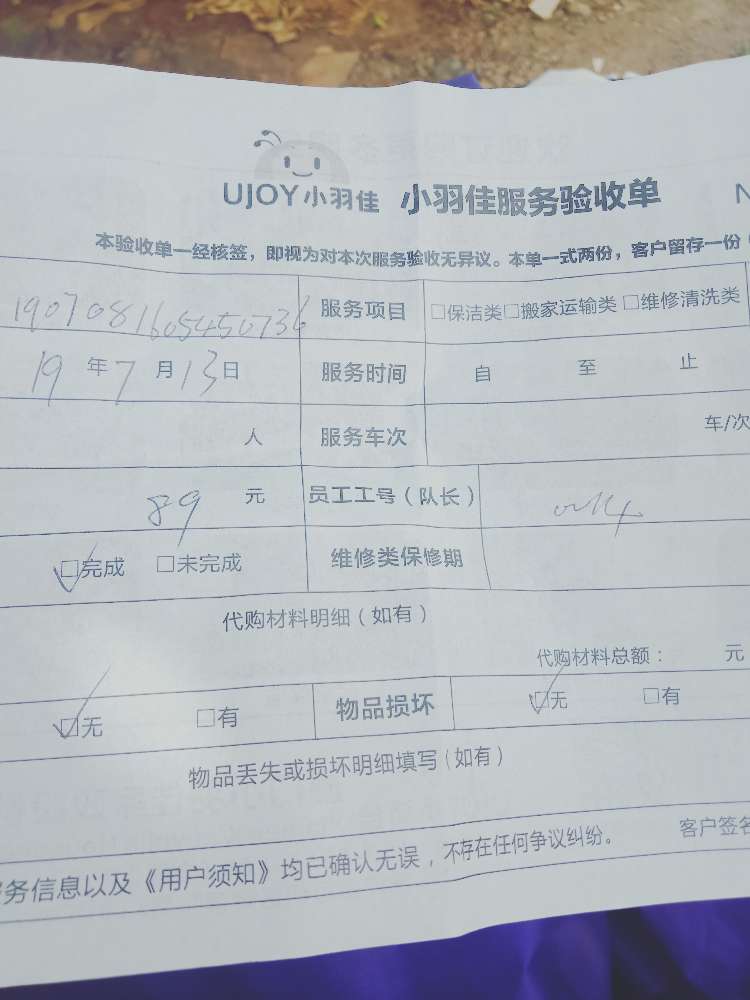 UJOY小羽佳 小羽佳服务验收单 N
本验收单一经核签，即视为对本次服务验收无异议。本单一式两份，客户留存一份
1907081605450736 服务项目 □保洁类□搬家运输类 □维修清洗类
19 年 7 月 13 日 服务时间 自 至 止
人 服务车次 车/次
89 元 员工工号（队长）
☑完成 □未完成 维修类保修期
代购材料明细（如有）
代购材料总额： 元
☑无 □有 物品损坏 ☑无 □有
物品丢失或损坏明细填写（如有）
务信息以及《用户须知》均已确认无误，不存在任何争议纠纷。 客户签名